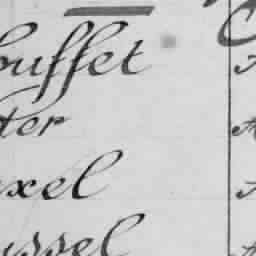 buffet
ter
exel
ussel